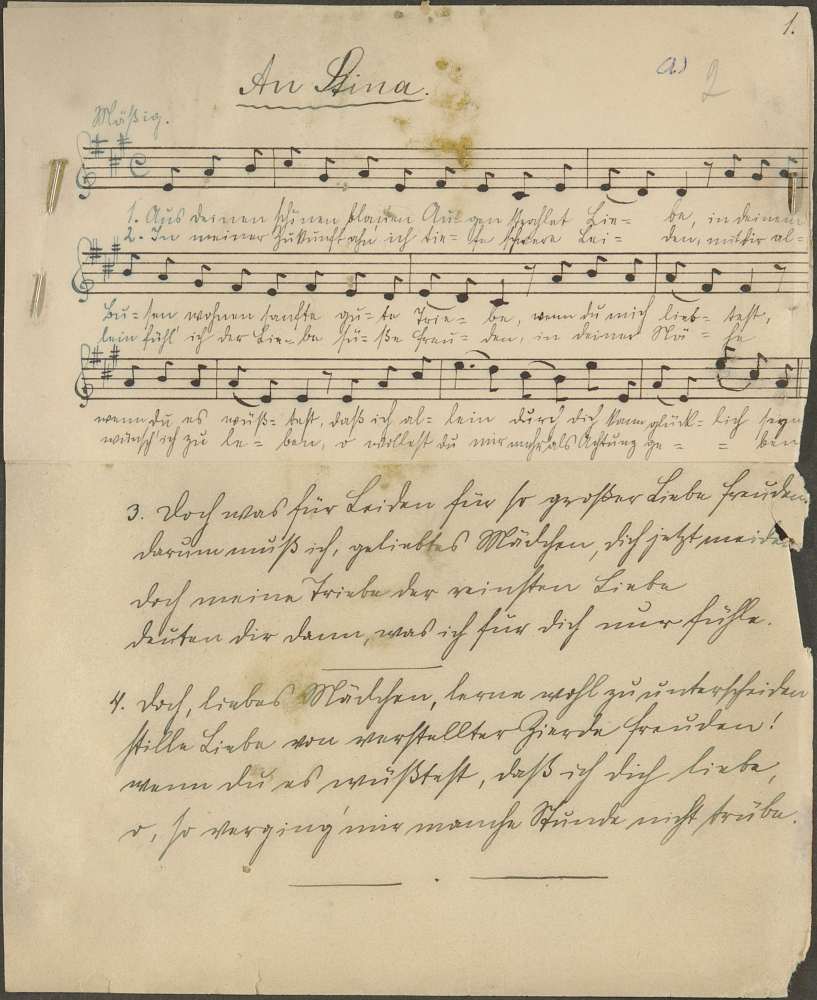 1.
An Stina.
a) 2
Mäßig.
1. Aus deinen schönen blauen Au- gen strahlet Lie- be, in deinem
2. In meiner Zukunft ahn' ich tie- fe schwere Lei- den, mit dir al-
Bu- sen wohnen sanfte gu- te Trie- be, wenn du mich lieb- test,
lein fühl' ich der Lie- be sü- ße Freu- den, in deiner Nä- he
wenn du es wüß- test, daß ich al- lein durch dich kann glück- lich seyn
wünsch' ich zu le- ben, o wollest du mir mehr als Achtung ge- = ben
3. Doch was für Leiden für so großer Liebe Freuden,
darum muß ich, geliebtes Mädchen, dich jetzt meiden
doch meine Triebe der reinsten Liebe
deuten dir dann, was ich für dich nur fühle.
4. Doch, liebes Mädchen, lerne wohl zu unterscheiden
stille Liebe von verstellter Zierde Freuden!
wenn du es wüßtest, daß ich dich liebe,
o, so verging' mir manche Stunde nicht trübe.